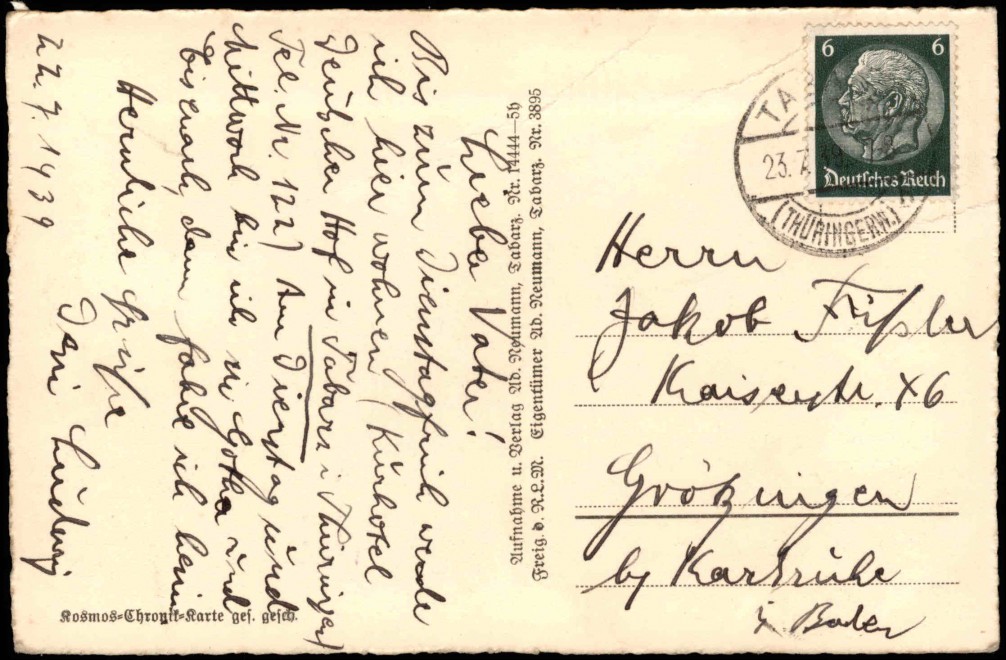 22.7.1939
Lieber Vater!
Bis zum Dienstagfrüh werde
ich hier wohnen (Kurhotel
Deutscher Hof in Tabarz i Thüringen
Tel. Nr. 122) Am Dienstag und
Mittwoch bin ich in Gotha und
Eisenach, dann fahre ich heim
Herzliche Grüße
Dein Ludwig
Kosmos-Chronik-Karte ges. gesch.
Aufnahme u. Verlag Ad. Neumann, Tabarz. Nr. 14444—5h
Freig. d. R.L.M. Eigentümer Ad. Neumann, Tabarz. Nr. 3895
6 6
Deutsches Reich
TA
23.7.
(THÜRINGERW.)
Herrn
Jakob Füßler
Kaiserstr. 86
Grötzingen
by Karlsruhe
i/ Baden